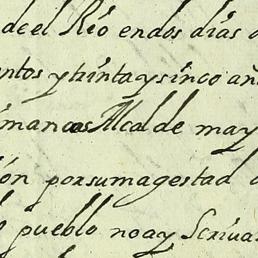 de el Rio en dos dias
entos y trinta y sinco añ
imancas Alcalde may
ón por su magestad
pueblo no ay Scriua